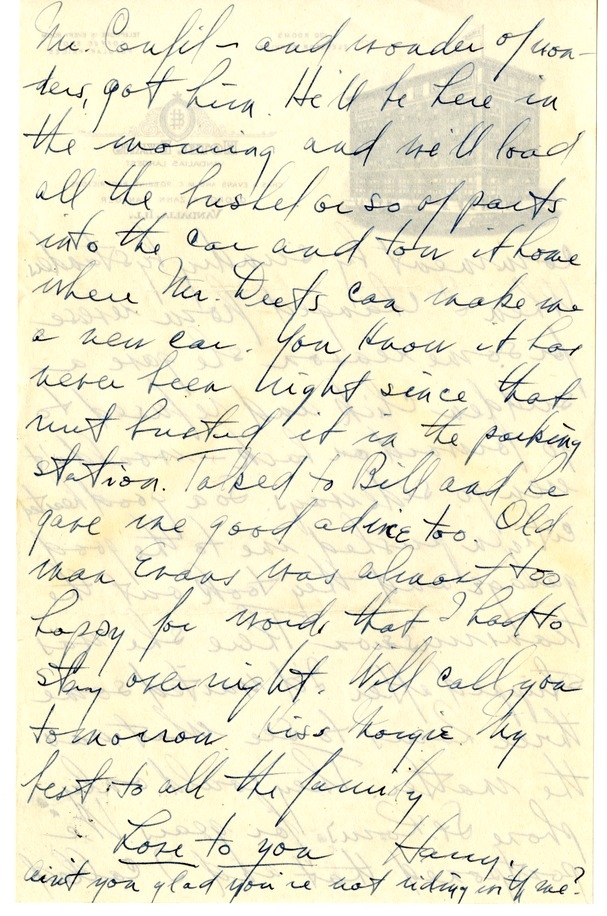 Mr. Canfil – and wonder of won-
ders, got him. He'll be here in
the morning and we'll load
all the bushel or so of parts
into the car and tow it home
where Mr. Deets can make me
a new car. You know it has
never been right since that
nut busted it in the parking
station. Talked to Bill and he
gave me good advice too. Old
man Evans was almost too
happy for words that I had to
stay over night. Will call you
tomorrow Kiss Margie. My
best to all the family
Love to you Harry.
ain't you glad you're not riding with me?